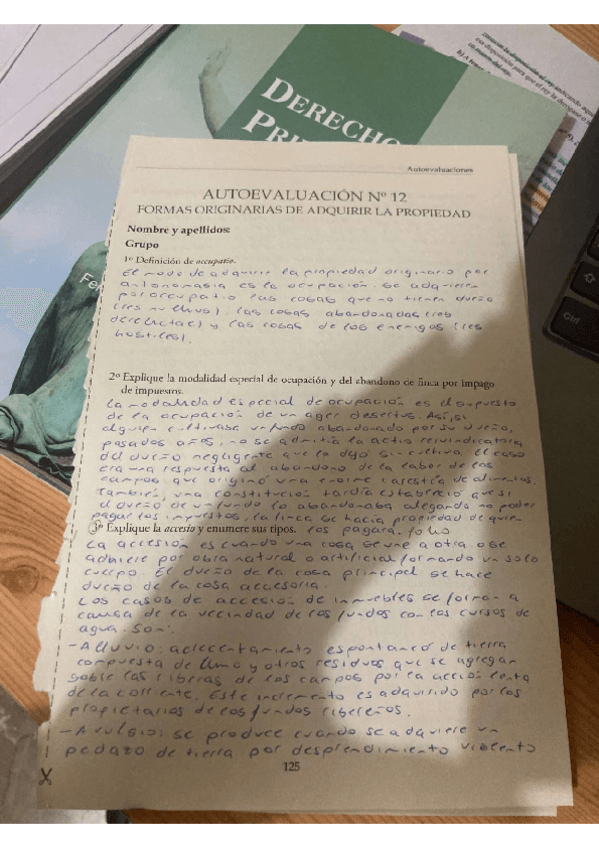 DERECHO
PRI
Fe
Ctrl
Autoevaluaciones
AUTOEVALUACIÓN Nº 12
FORMAS ORIGINARIAS DE ADQUIRIR LA PROPIEDAD
Nombre y apellidos:
Grupo
1º Definición de occupatio.
El modo de adquirir la propiedad originario por
antonomasia es la ocupación. Se adquieren
por occupatio las cosas que no tienen dueño
(res nullius), las cosas abandonadas (res
derelictae) y las cosas de los enemigos (res
hostiles).
2º Explique la modalidad especial de ocupación y del abandono de finca por impago
de impuestos.
La modalidad especial de ocupación es el supuesto
de la ocupación de un ager desertus. Así, si
alguien cultivaba un fundo abandonado por su dueño,
pasados años, no se admitía la actio reivindicatoria
del dueño negligente que lo dejó sin cultivar. El caso
era una respuesta al abandono de la labor de los
campos que originó una enorme carestía de alimentos.
También, una constitución tardía estableció que si
el dueño de un fundo lo abandonaba alegando no poder
pagar los impuestos, la finca se hacía propiedad de quien
3º Explique la accesio y enumere sus tipos. los pagara.
La accesión es cuando una cosa se une a otra o se
adhiere por obra natural o artificial formando un solo
cuerpo. El dueño de la cosa principal se hace
dueño de la cosa accesoria.
Los casos de accesión de inmuebles se forman a
causa de la vecindad de los fundos con los cursos de
agua. Son:
- Alluvio: acrecentamiento espontáneo de tierra
compuesta de limo y otros residuos que se agregan
sobre las riberas de los campos por la acción lenta
de la corriente. Este incremento es adquirido por los
propietarios de los fundos ribereños.
- Avulsio: se produce cuando se adquiere un
pedazo de tierra por desprendimiento violento
125